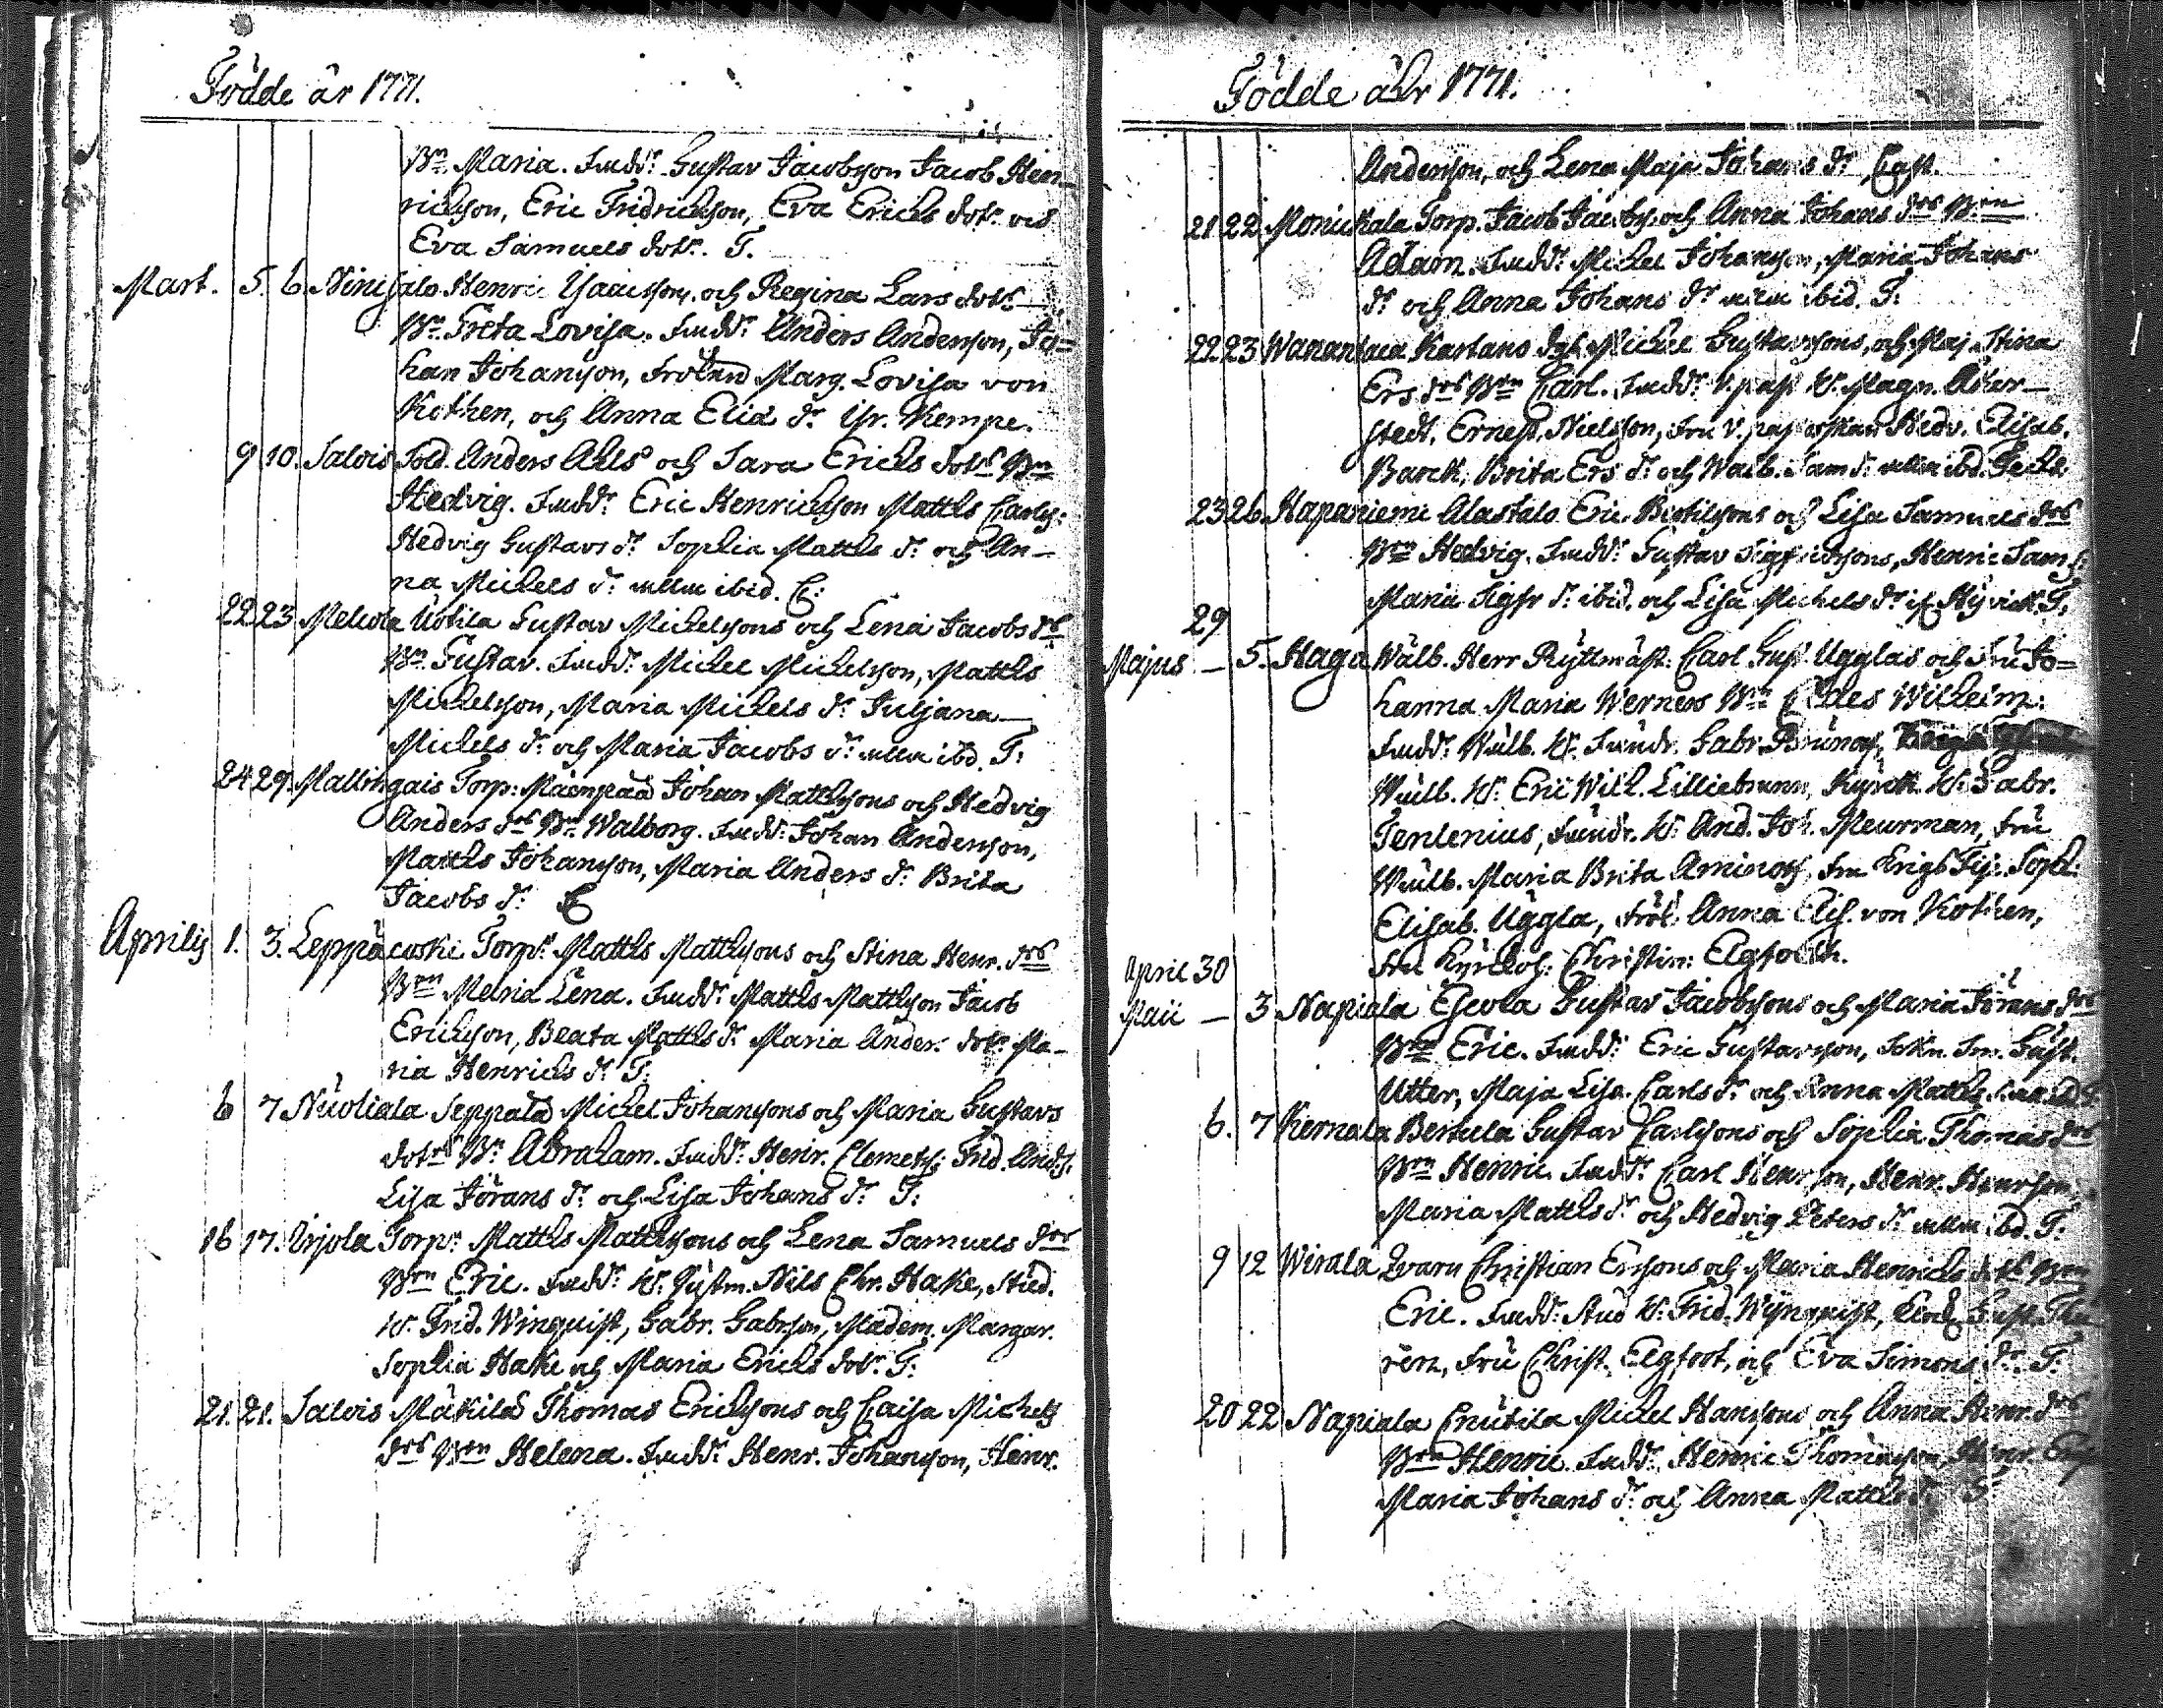 Födde år 1771.
Bn Maria. Fudd: Gustav Jacobsson Jacob Hen-
richsson, Eric Fridrichsson, Eva Erichs dotr. och
Eva Samuels dotr. T.
Mart. 5. 6. Nini Henric och Regina Lars dotrs
Bn Greta Lovisa. Fudd: Anders Andersson, Jo=
han Johansson, Marg. Lovisa von
Kothen, och Anna Elia dr Kempe.
9 10. Salois Sold. Anders Ahls och Sara Erichs dotrs Bn
Hedvig. Fudd: Eric Henrichsson Matths Carlss:
Hedvig Gustavs dr Sophia Matths dr och An-
na Michels dr ibid. C:
22 23 Melkola Uotila Gustav Michelssons och Lena Jacobs drs
Bn Gustav. Fudd: Michel Michelsson, Matths
Michelsson, Maria Michels dr Juljana
Michels dr och Maria Jacobs dr ibd. T:
24 29. Mallingais Torp: Mäenpää Johan Matthssons och Hedvig
Anders drs Bn Walborg. Fudd: Johan Andersson,
Matths Johansson, Maria Anders dr Brita
Jacobs dr C
Aprilis 1. 3. Leppäcoski Torp: Matths Matthssons och Stina Henr. drs
Bn Maria Lena. Fudd: Matths Matthsson Jacob
Erichsson, Beata Matths dr Maria Anders dotr. Ma-
ria Henrichs dr T:
6 7 Nuoliala Seppälä Michel Johanssons och Maria Gustavs
dotrs Bn Abraham. Fudd: Henr. Clemetss: Frid. And:s.
Lisa Jörans dr och Lisa Johans dr T:
16 17. Urjola Torp: Matths Matthssons och Lena Samuels drs
Bn Eric. Fudd: Hr Nils Chr. Hake, Stud.
Hr Frid. Winquist, Gabr. Gabrsson, Madem. Margar.
Sophia Hake och Maria Erichs dotr. T:
21. 21. Salois Mäkilä Thomas Erichssons och Caisa Michels
drs Bn Helena. Fudd: Henr. Johansson, Henr.
Födde åhr 1771.
Andersson, och Lena Maja Johans dr
21 22 Monickala Torp. Jacob Jacobs: och Anna Johans drs Bn
Adam. Fudd: Michel Johansson, Maria Johans
dr och Anna Johans dr ibid. T:
22 23 Wanantaca Kartano Michel Gustavssons, och Maj Stina
Ers drs Bn Carl. Fudd: V. past Hr Magn. Aker-
stedt, Ernest Nielsson, Fru V. Hedv. Elisab.
Barck, Brita Ers dr och Walb. Sam dr ibd.
23 26. Hapaniemi Alastalo Eric Bertilssons och Lisa Samuels drs
Bn Hedvig. Fudd: Gustav Sigfridssons, Henric Sam s:
Maria Sigfr dr ibid. och Lisa Michels dr T.
29
Majus - 5. Haga Wälb. Herr Ryttmäst: Carl Gust Ugglas och Fru Jo=
hanna Maria Werners Bn Claes Wilhelm:
Fudd: Wälb. Hr Gabr.
Wälb. Hr Eric Wilh. Lilliebrunn, Hr Gabr.
Tenlenius, Hr And. Joh. Meurman, Fru
Wälb. Maria Brita Aminoff, Fru Soph.
Elisab. Uggla, Fröl. Anna Elis. von Kothen,
Fru Christin:
April 30
Maii - 3 Napiala Gustav Jacobssons och Maria Jörans drs
Bn Eric. Fudd: Eric Gustavsson, Gust.
Utter, Maja Lisa Carls dr och Anna Matths
6. 7 Kernala Bertula Gustav Carlssons och Sophia Thomas drs
Bn Henric Fudd: Carl Henrsson, Henr. Henrsson
Maria Matths dr och Hedvig Peters dr ibd. T:
9 12 Wirala Christian Erssons och Maria Henrichs Bn
Eric. Fudd: Stud Hr Frid. Wynquist, Gust.
ren, Fru Christ. Elgfoot, och Eva Simons dr T:
20 22 Napiala Cnutila Michel Hanssons och Anna Henr. drs
Bn Henric Fudd: Henric Thomasson, Henr.
Maria Johans dr och Anna Matths